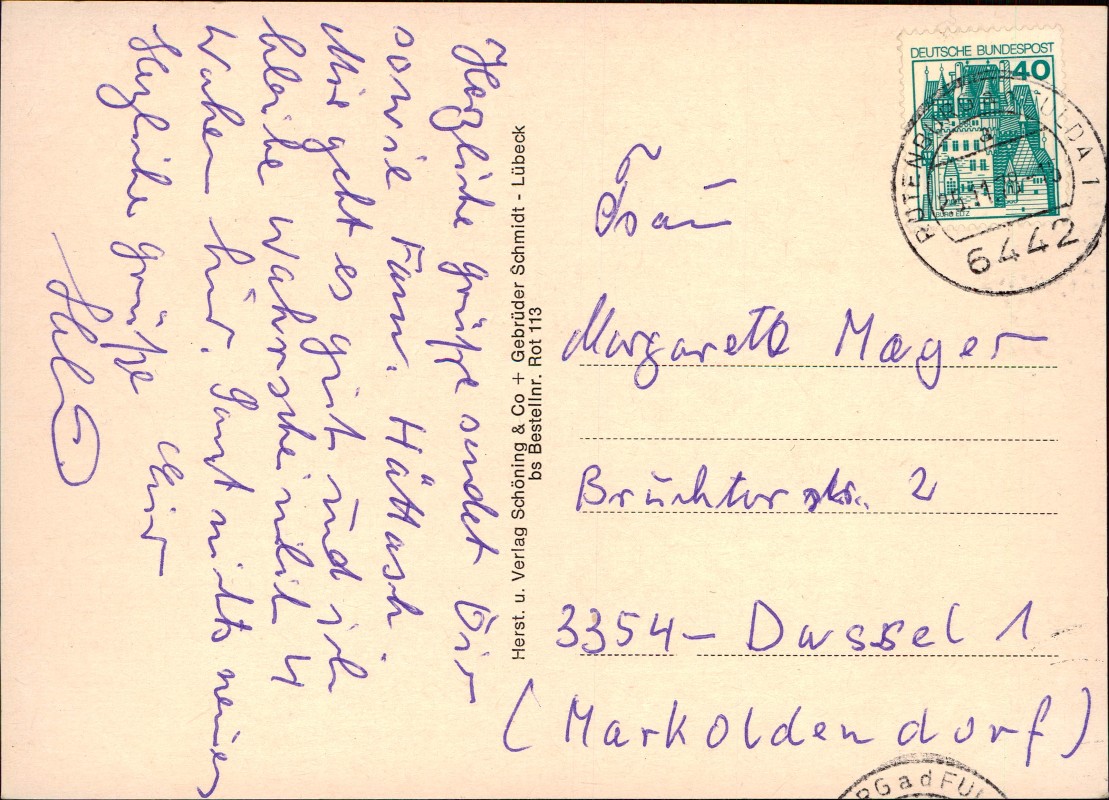 Herzliche Grüße sendet Dir
sowie Fam. Hättasch
Mir geht es gut und ich
bleibe wahrscheinlich 4
Wochen hier. Sonst nichts neues
Herzliche Grüße
Herst. u. Verlag Schöning & Co + Gebrüder Schmidt - Lübeck
bs Bestellnr. Rot 113
DEUTSCHE BUNDESPOST
40
BURG ELTZ
FULDA 1
6442
Frau
Margarete Mager
Bruchtorstr. 2
3354 - Dassel 1
(Markoldendorf)
RG a d FUL